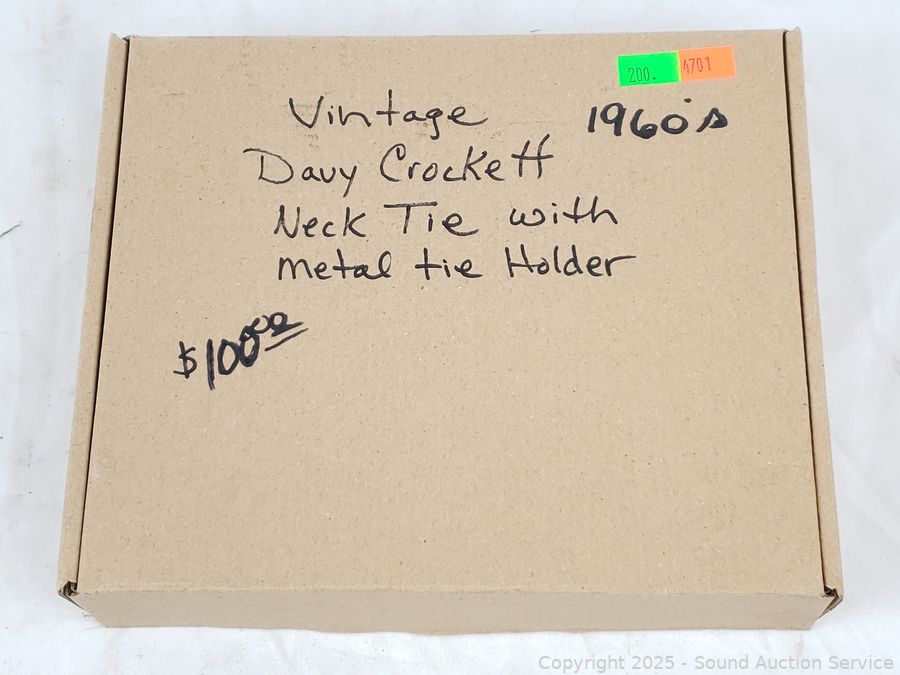 200. 4701
Vintage 1960's
Davy Crockett
Neck Tie with
metal tie Holder
$100.00
Copyright 2025 - Sound Auction Service